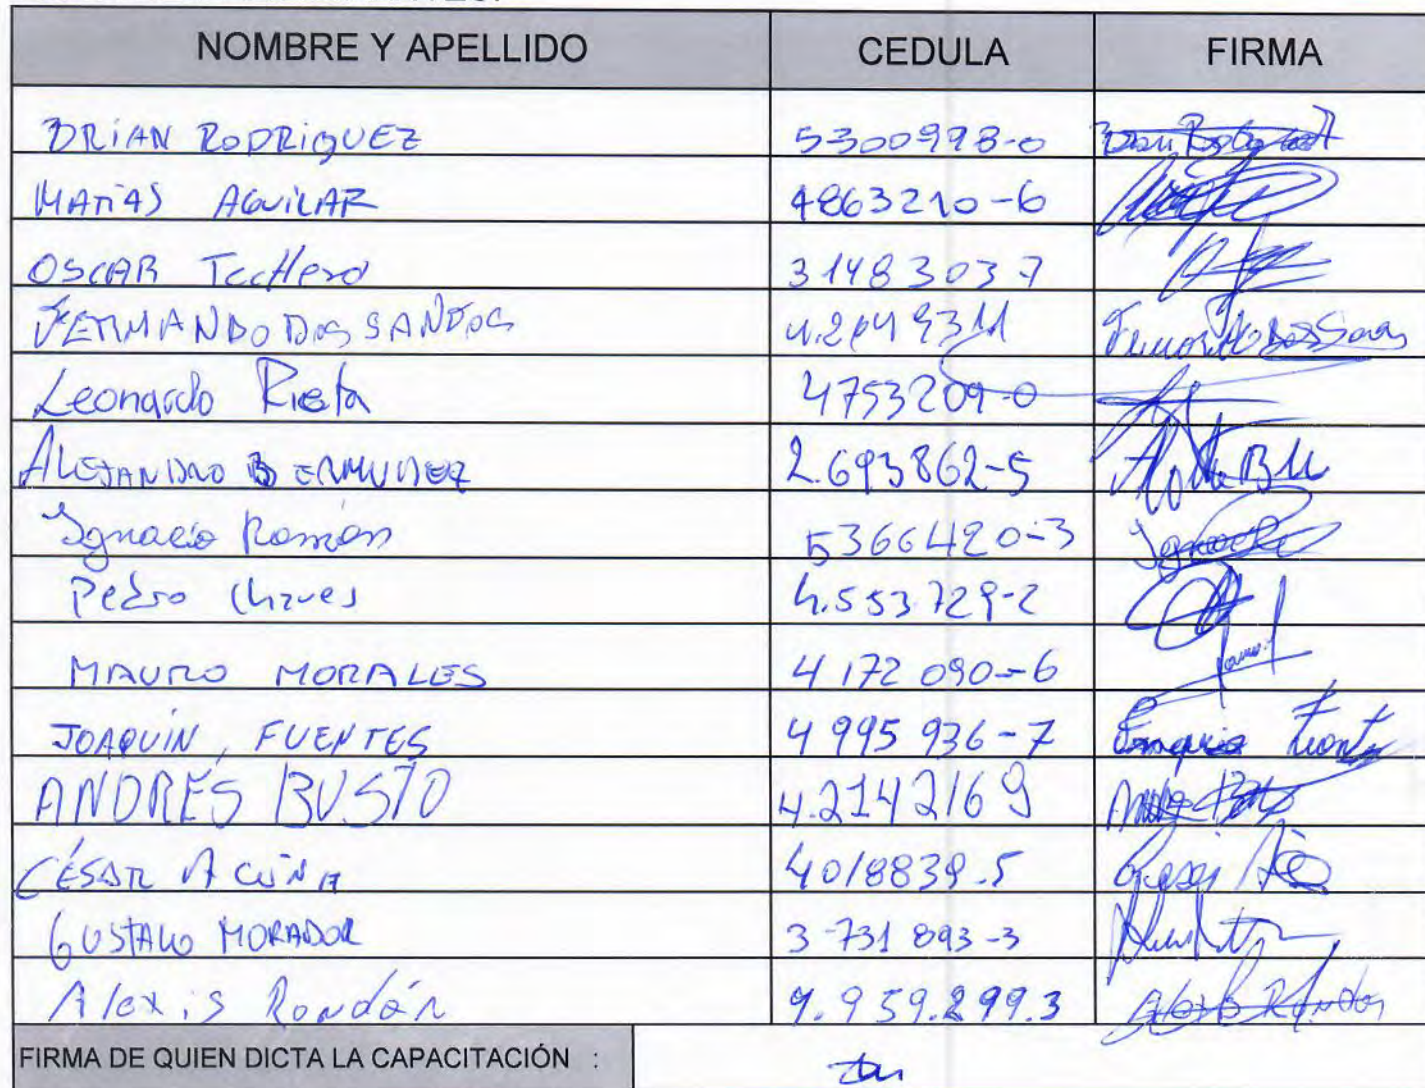 NOMBRE Y APELLIDO CEDULA FIRMA
BRIAN RODRIGUEZ 5300998-0
MATIAS AGUILAR 4863210-6
OSCAR 31483037
FERNANDO DOS SANTOS
Leonardo 4753209-0
ALEJANDRO BERMUDEZ 2.693862-5
Ignacio Román 5366420-3
Pedro Chaves 4.553.729-2
MAURO MORALES 4172 090-6
JOAQUÍN, FUENTES 4 995 936-7
ANDRÉS BUSTO 4.2142169
CÉSAR ACUÑA 4018839.5
GUSTAVO MORADOR 3-731 893-3
Alexis Rondán 4.959.299.3
FIRMA DE QUIEN DICTA LA CAPACITACIÓN :